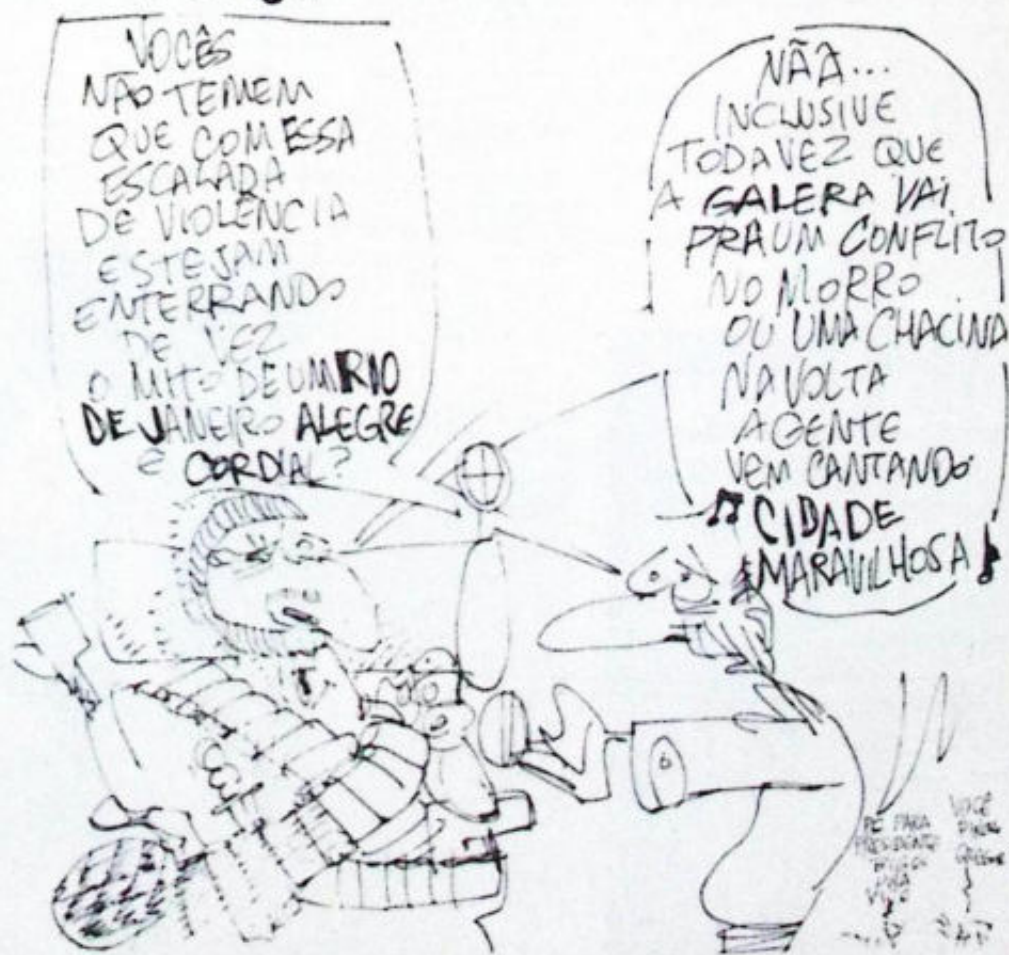 VOCÊS
NÃO TEMEM
QUE COM ESSA
ESCALADA
DE VIOLÊNCIA
ESTEJAM
ENTERRANDO
DE VEZ
O MITO DE UM RIO
DE JANEIRO ALEGRE
E CORDIAL?
NÃA...
INCLUSIVE
TODA VEZ QUE
A GALERA VAI
PRA UM CONFLITO
NO MORRO
OU UMA CHACINA
NA VOLTA
A GENTE
VEM CANTANDO
CIDADE
MARAVILHOSA
PARA
PRESIDENTE
VOCÊ